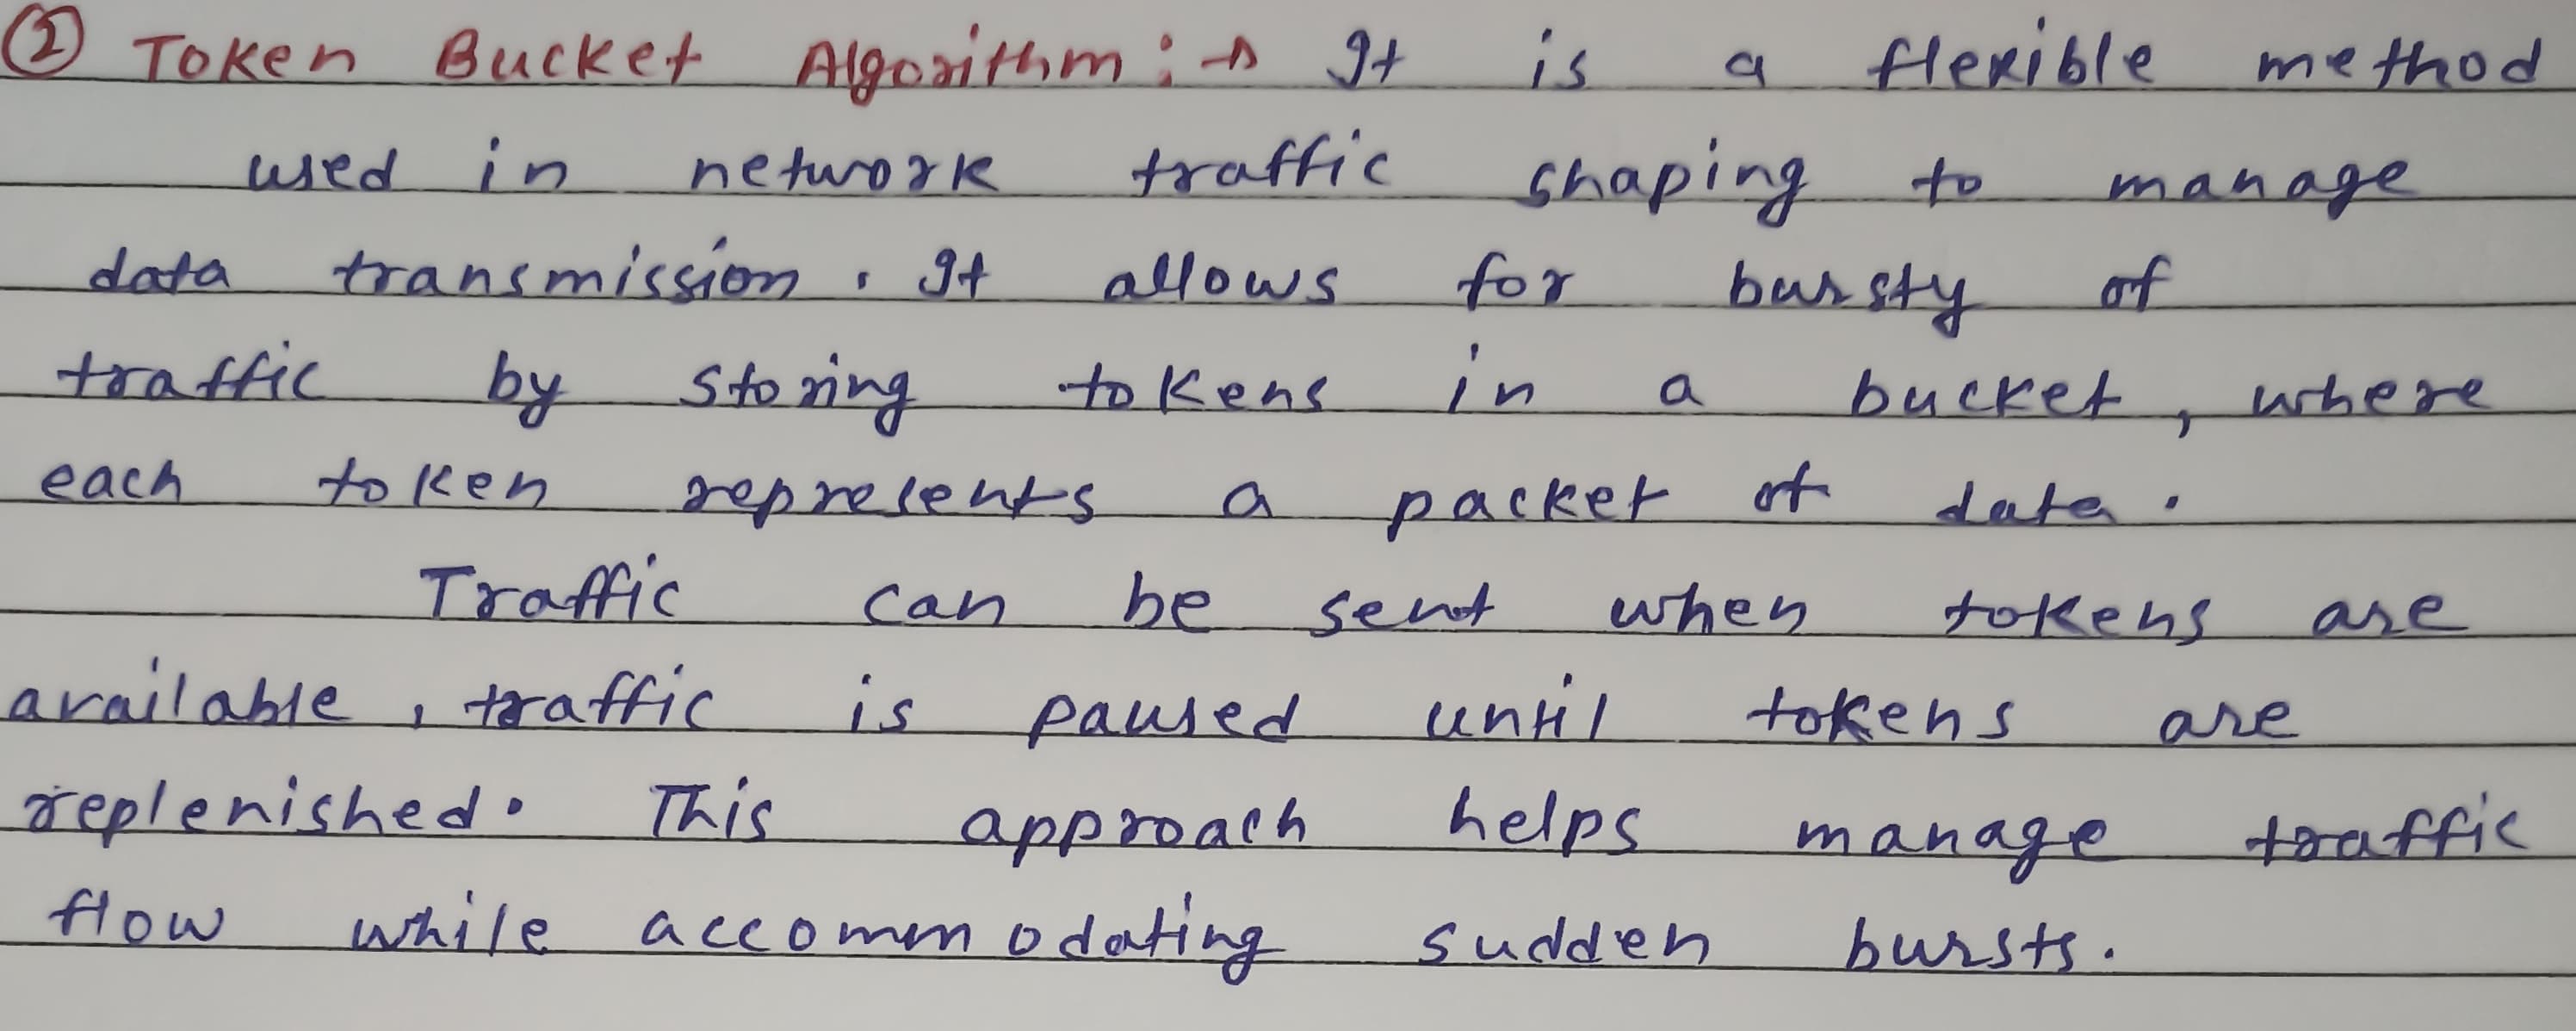 ② Token Bucket Algorithm :→ It is a flexible method
used in network traffic shaping to manage
data transmission. It allows for bursty of
traffic by storing tokens in a bucket, where
each token represents a packet of data.
Traffic can be sent when tokens are
available, traffic is paused until tokens are
replenished. This approach helps manage traffic
flow while accommodating sudden bursts.